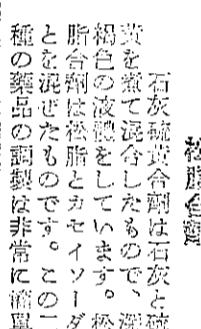 松脂合劑
石灰硫黄合劑は石灰と硫
黄を煮て混合したもので、深
褐色の液體をしています。松
脂合劑は松脂とカセイソーダ
とを混ぜたものです。この二
種の藥品の調製は非常に簡單